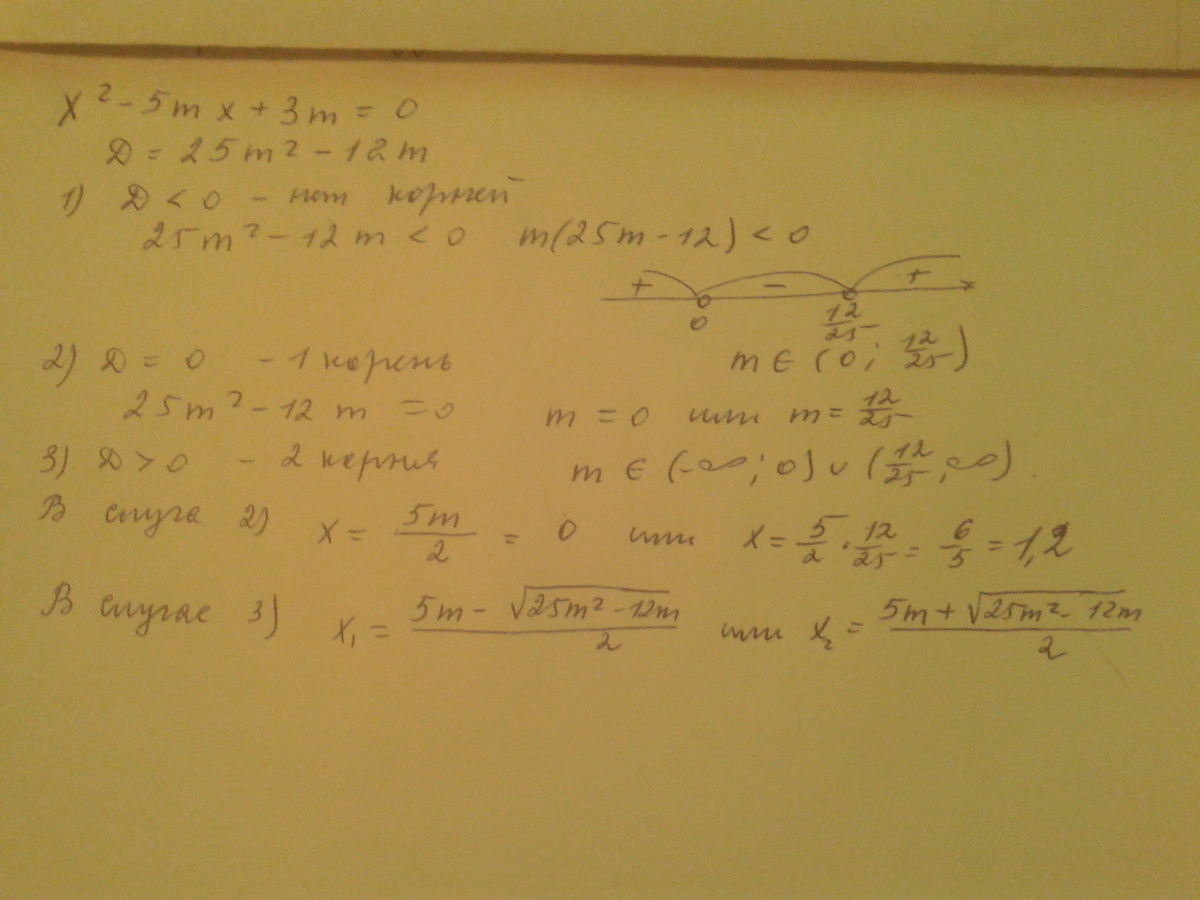 x² - 5mx + 3m = 0
D = 25m² - 12m
1) D < 0 - нет корней
25m² - 12m < 0 m(25m - 12) < 0
+ - +
0 12/25
2) D = 0 - 1 корень m ∈ (0; 12/25)
25m² - 12m = 0 m = 0 или m = 12/25
3) D > 0 - 2 корня m ∈ (-∞; 0) ∪ (12/25; ∞)
В случа 2) x = 5m/2 = 0 или x = 5/2 · 12/25 = 6/5 = 1,2
В случае 3) x₁ = (5m - √(25m² - 12m))/2 или x₂ = (5m + √(25m² - 12m))/2